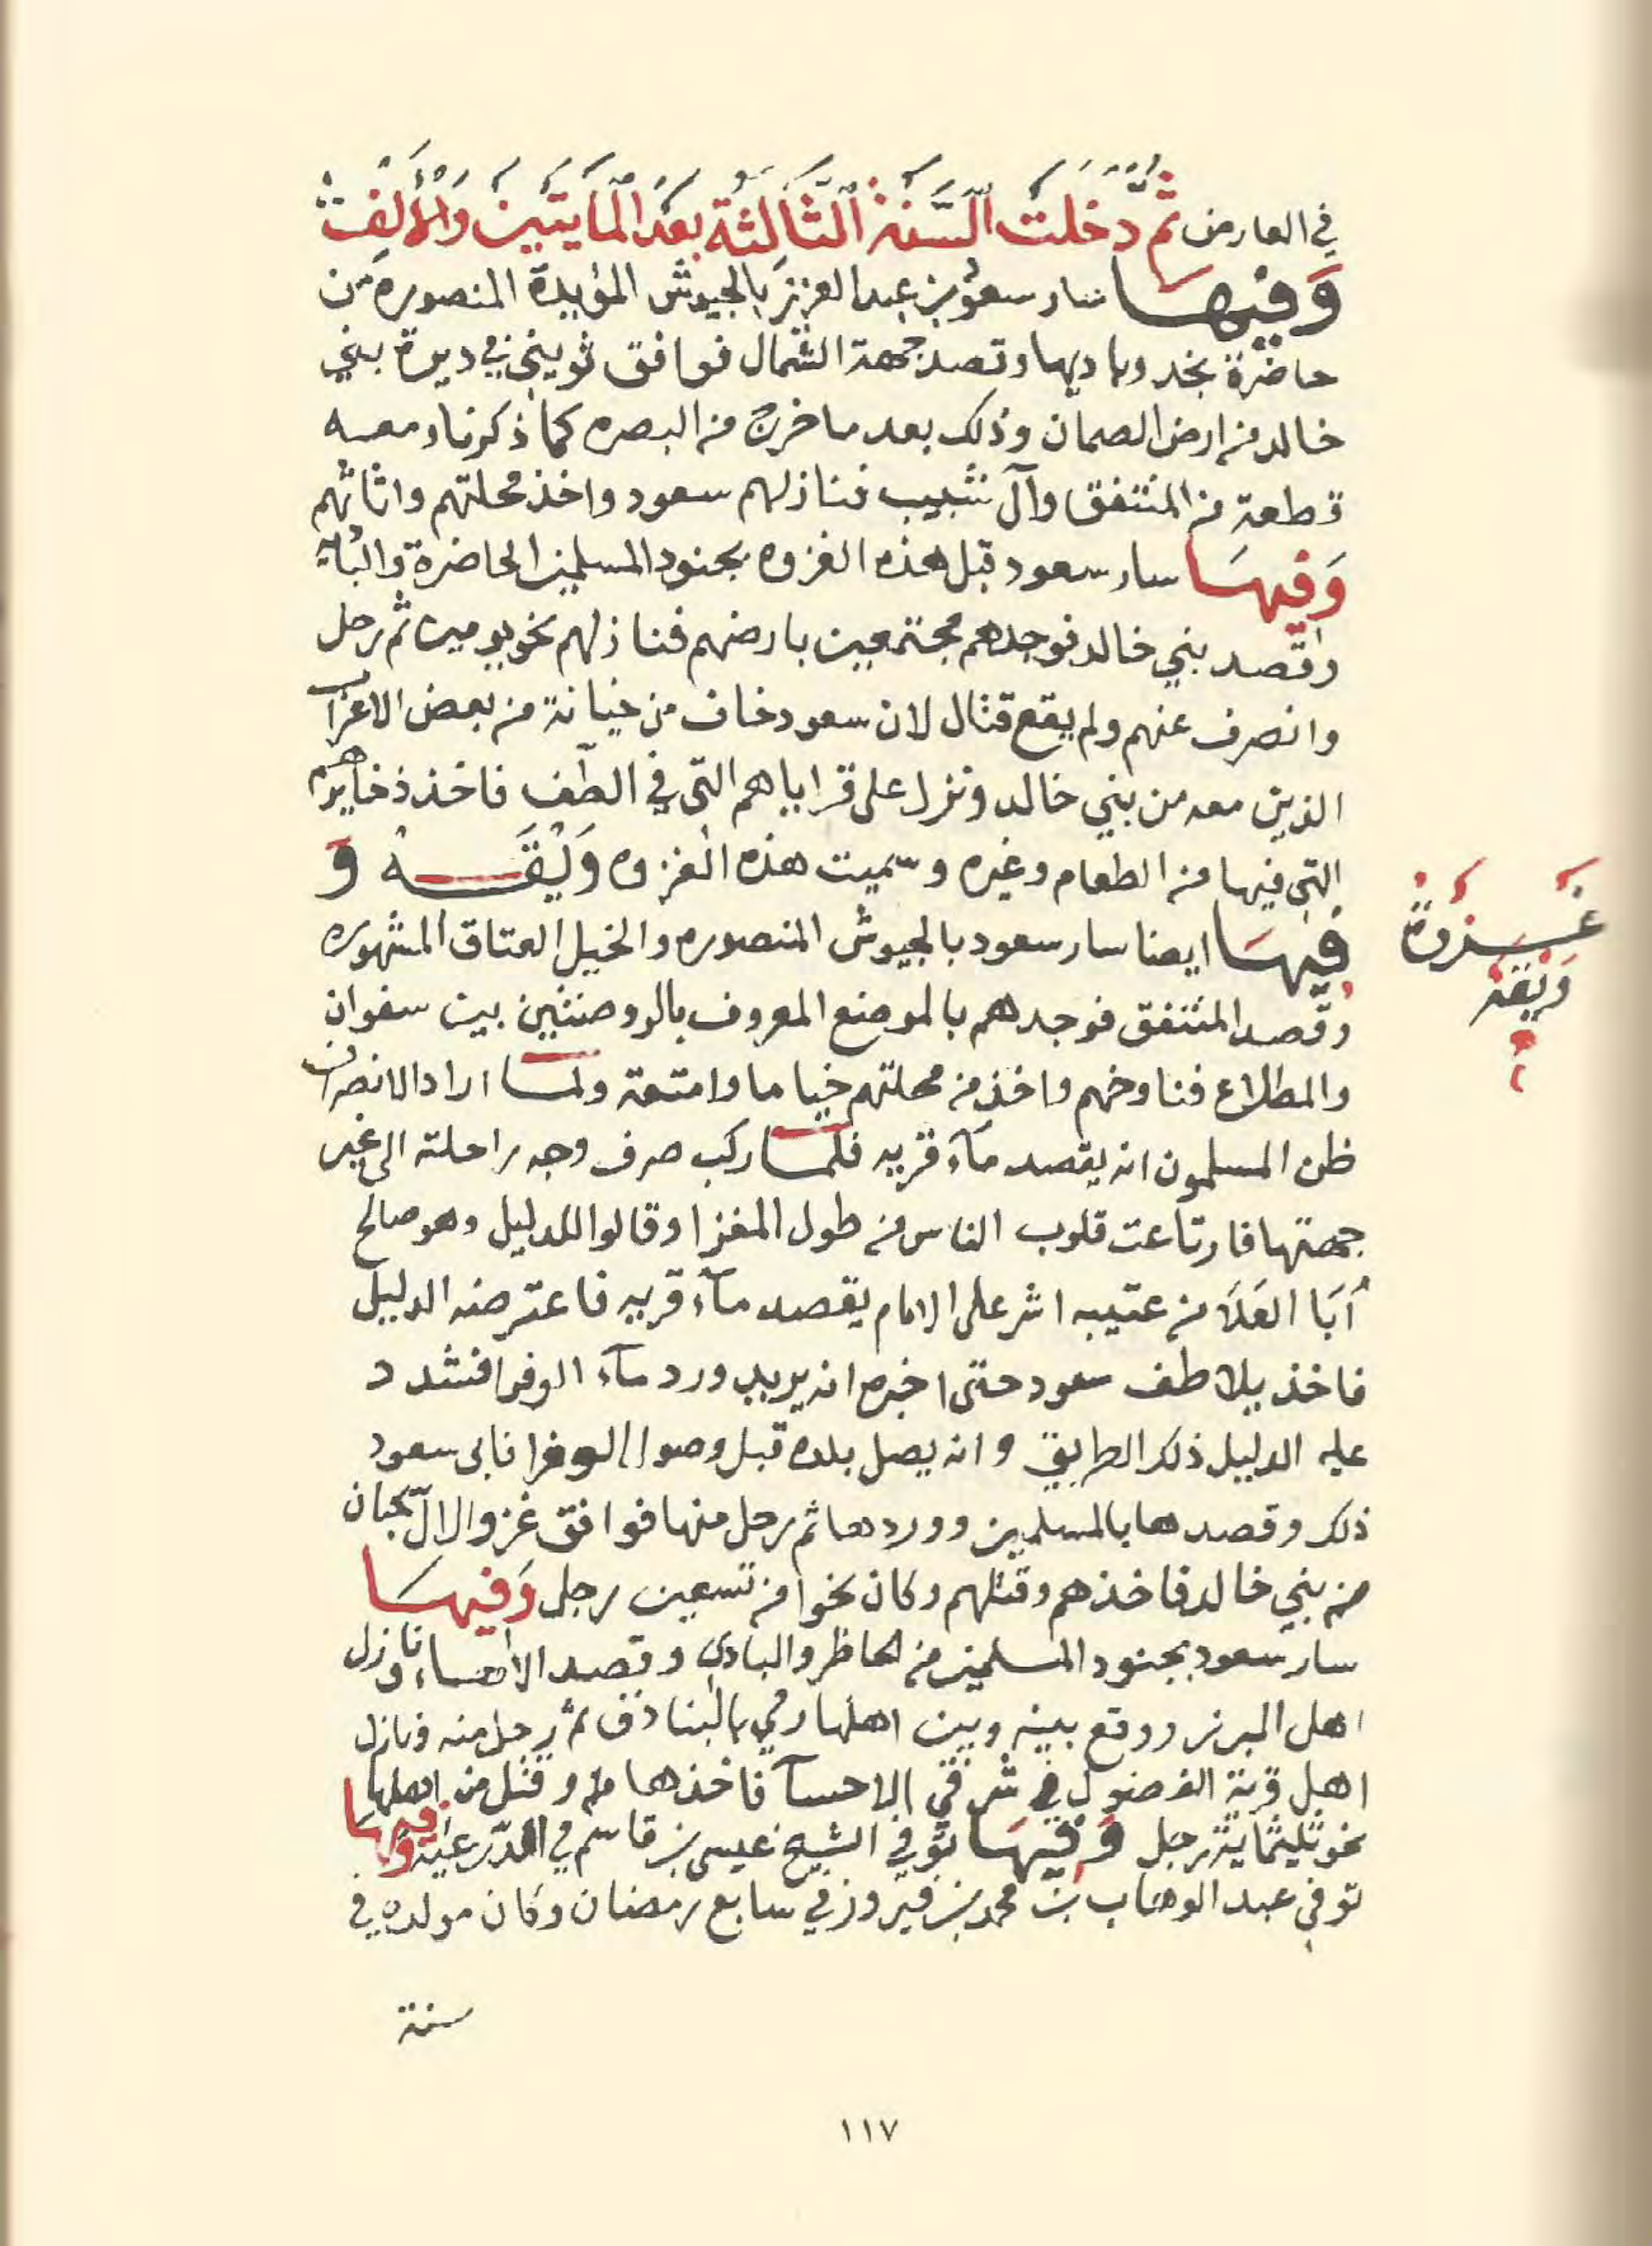 في العارض ثُمَّ دَخَلَت السَّنَة الثَّالِثَة بَعْدَ المايتَين وَالأَلِف
وَفِيهَا سار سعود بن عبد العزيز بالجيوش المؤيدة المنصوره من
حاضرة نجد وباديها وقصد جهة الشمال فوافق ثويني في ديرة بني
خالد من ارض الصمان وذلك بعد ما خرج من البصره كما ذكرنا ومعه
قطعة من المنتفق وآل شبيب فنازلهم سعود واخذ محلتهم واثاثهم
وَفِيهَا سار سعود قبل هذه الغزوه بجنود المسلمين الحاضرة والباد
وقصد بني خالد فوجدهم مجتمعين بارضهم فنازلهم نحو يومين ثم رحل
وانصرف عنهم ولم يقع قتال لان سعود خاف من خيانة من بعض الاعراب
الذين معه من بني خالد ونزل على قراياهم التي في الطف فاخذ ذخايرهم
التي فيها من الطعام وغيره وسميت هذه الغزوه وَيْقَه وَ
فِيهَا ايضا سار سعود بالجيوش المنصوره والخيل العتاق المشهوره
وقصد المنتفق فوجدهم بالموضع المعروف بالروضنتين بين سفوان
والمطلاع فناوخهم واخذ من محلتهم خياما وامتعة ولما اراد الانصراف
ظن المسلمون انه يقصد مآء قريه فلما ركب صرف وجه راحلته الى غير
جهتها فارتاعت قلوب الناس من طول المغزا وقالوا للدليل وهو صالح
أبَا العَلَا من عتيبه اشر على الامام يقصد مآء قريه فاعترضه الدليل
فاخذ يلاطف سعود حتى اخبره انه يريد ورد مآء الوفرا فشدد
عليه الدليل ذلك الطريق وانه يصل بلده قبل وصول الوفرا فابى سعود
ذلك وقصدها بالمسلمين ووردها ثم رحل منها فوافق غزوا لال سحبان
من بني خالد فاخذهم وقتلهم وكان نحوا من تسعين رجل وَفِيهَا
سار سعود بجنود المسلمين من الحاظر والبادي وقصد الاحساء ونازل
اهل المبرز ووقع بينه وبين اهلها رمي بالبنادق ثم رحل منه ونازل
اهل قرية الفضول في شرقي الاحسآ فاخذها وقتل من اهلها
نحو ثليثماية رجل وَفِيهَا توفي الشيخ عيسى بن قاسم في الدرعيه وَفِيهَا
توفي عبد الوهاب بن محمد بن فيروز في سابع رمضان وكان مولده في
سنة
غَزوَةُ
وَيْقَه
١١٧